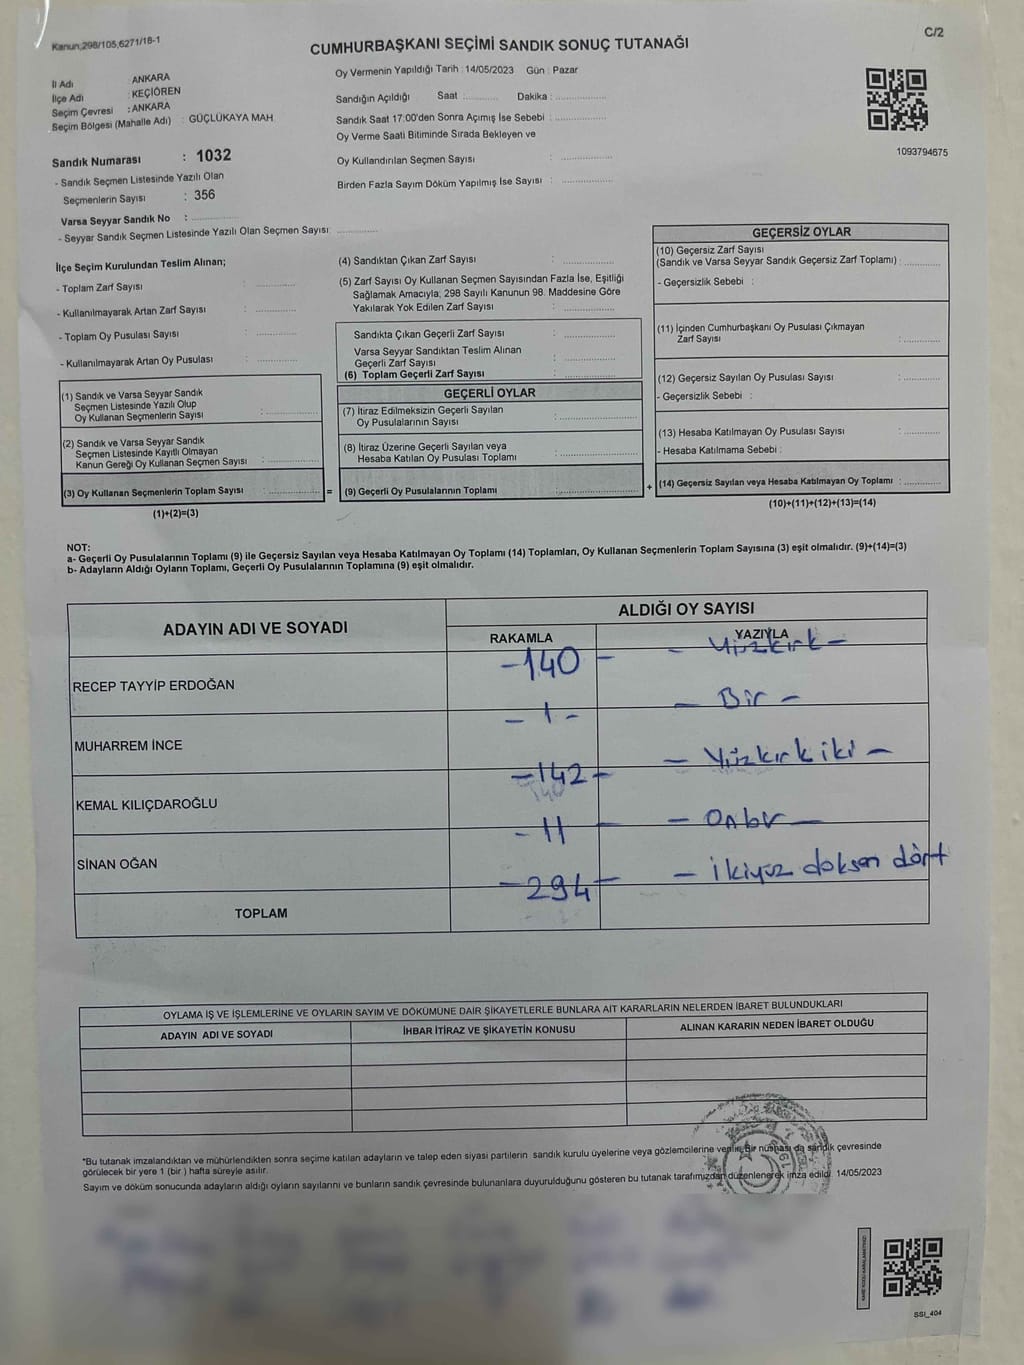 Kanun;298/105,6271/18-1
C/2
CUMHURBAŞKANI SEÇİMİ SANDIK SONUÇ TUTANAĞI
Oy Vermenin Yapıldığı Tarih : 14/05/2023 Gün : Pazar
İl Adı : ANKARA
İlçe Adı : KEÇİÖREN
Seçim Çevresi : ANKARA
Seçim Bölgesi (Mahalle Adı) : GÜÇLÜKAYA MAH.
Sandığın Açıldığı Saat :............ Dakika :..................
Sandık Saat 17:00'den Sonra Açımış İse Sebebi :..................
Oy Verme Saati Bitiminde Sırada Bekleyen ve
Oy Kullandırılan Seçmen Sayısı :..................
Birden Fazla Sayım Döküm Yapılmış İse Sayısı :..................
1093794675
Sandık Numarası : 1032
- Sandık Seçmen Listesinde Yazılı Olan
Seçmenlerin Sayısı : 356
Varsa Seyyar Sandık No :..................
- Seyyar Sandık Seçmen Listesinde Yazılı Olan Seçmen Sayısı:..............
İlçe Seçim Kurulundan Teslim Alınan;
- Toplam Zarf Sayısı :..............
- Kullanılmayarak Artan Zarf Sayısı :..............
- Toplam Oy Pusulası Sayısı :..............
- Kullanılmayarak Artan Oy Pusulası :..............
(1) Sandık ve Varsa Seyyar Sandık
Seçmen Listesinde Yazılı Olup
Oy Kullanan Seçmenlerin Sayısı :..................
(2) Sandık ve Varsa Seyyar Sandık
Seçmen Listesinde Kayıtlı Olmayan
Kanun Gereği Oy Kullanan Seçmen Sayısı :..................
(3) Oy Kullanan Seçmenlerin Toplam Sayısı :..................
(1)+(2)=(3)
(4) Sandıktan Çıkan Zarf Sayısı :..................
(5) Zarf Sayısı Oy Kullanan Seçmen Sayısından Fazla İse, Eşitliği
Sağlamak Amacıyla, 298 Sayılı Kanunun 98. Maddesine Göre
Yakılarak Yok Edilen Zarf Sayısı :..................
Sandıkta Çıkan Geçerli Zarf Sayısı :..................
Varsa Seyyar Sandıktan Teslim Alınan
Geçerli Zarf Sayısı :..................
(6) Toplam Geçerli Zarf Sayısı :..................
GEÇERLİ OYLAR
(7) İtiraz Edilmeksizin Geçerli Sayılan
Oy Pusulalarının Sayısı :..................
(8) İtiraz Üzerine Geçerli Sayılan veya
Hesaba Katılan Oy Pusulası Toplamı :..................
= (9) Geçerli Oy Pusulalarının Toplamı :..................
GEÇERSİZ OYLAR
(10) Geçersiz Zarf Sayısı
(Sandık ve Varsa Seyyar Sandık Geçersiz Zarf Toplamı) :............
- Geçersizlik Sebebi :
(11) İçinden Cumhurbaşkanı Oy Pusulası Çıkmayan
Zarf Sayısı :............
(12) Geçersiz Sayılan Oy Pusulası Sayısı :............
- Geçersizlik Sebebi :
(13) Hesaba Katılmayan Oy Pusulası Sayısı :............
- Hesaba Katılmama Sebebi :
+ (14) Geçersiz Sayılan veya Hesaba Katılmayan Oy Toplamı :............
(10)+(11)+(12)+(13)=(14)
NOT:
a- Geçerli Oy Pusulalarının Toplamı (9) ile Geçersiz Sayılan veya Hesaba Katılmayan Oy Toplamı (14) Toplamları, Oy Kullanan Seçmenlerin Toplam Sayısına (3) eşit olmalıdır. (9)+(14)=(3)
b- Adayların Aldığı Oyların Toplamı, Geçerli Oy Pusulalarının Toplamına (9) eşit olmalıdır.
ADAYIN ADI VE SOYADI
ALDIĞI OY SAYISI
RAKAMLA YAZIYLA
RECEP TAYYİP ERDOĞAN -140- - Yüzkırk -
MUHARREM İNCE - 1 - - Bir -
KEMAL KILIÇDAROĞLU -142- - Yüzkırk iki -
SİNAN OĞAN - 11 - - Onbir -
TOPLAM -294- - ikiyüz doksan dört
OYLAMA İŞ VE İŞLEMLERİNE VE OYLARIN SAYIM VE DÖKÜMÜNE DAİR ŞİKAYETLERLE BUNLARA AİT KARARLARIN NELERDEN İBARET BULUNDUKLARI
ADAYIN ADI VE SOYADI İHBAR İTİRAZ VE ŞİKAYETİN KONUSU ALINAN KARARIN NEDEN İBARET OLDUĞU
*Bu tutanak imzalandıktan ve mühürlendikten sonra seçime katılan adayların ve talep eden siyasi partilerin sandık kurulu üyelerine veya gözlemcilerine verilir.Bir nüshası da sandık çevresinde
görülecek bir yere 1 (bir ) hafta süreyle asılır.
Sayım ve döküm sonucunda adayların aldığı oyların sayılarını ve bunların sandık çevresinde bulunanlara duyurulduğunu gösteren bu tutanak tarafımızdan düzenlenerek imza edildi. 14/05/2023
SSI_404